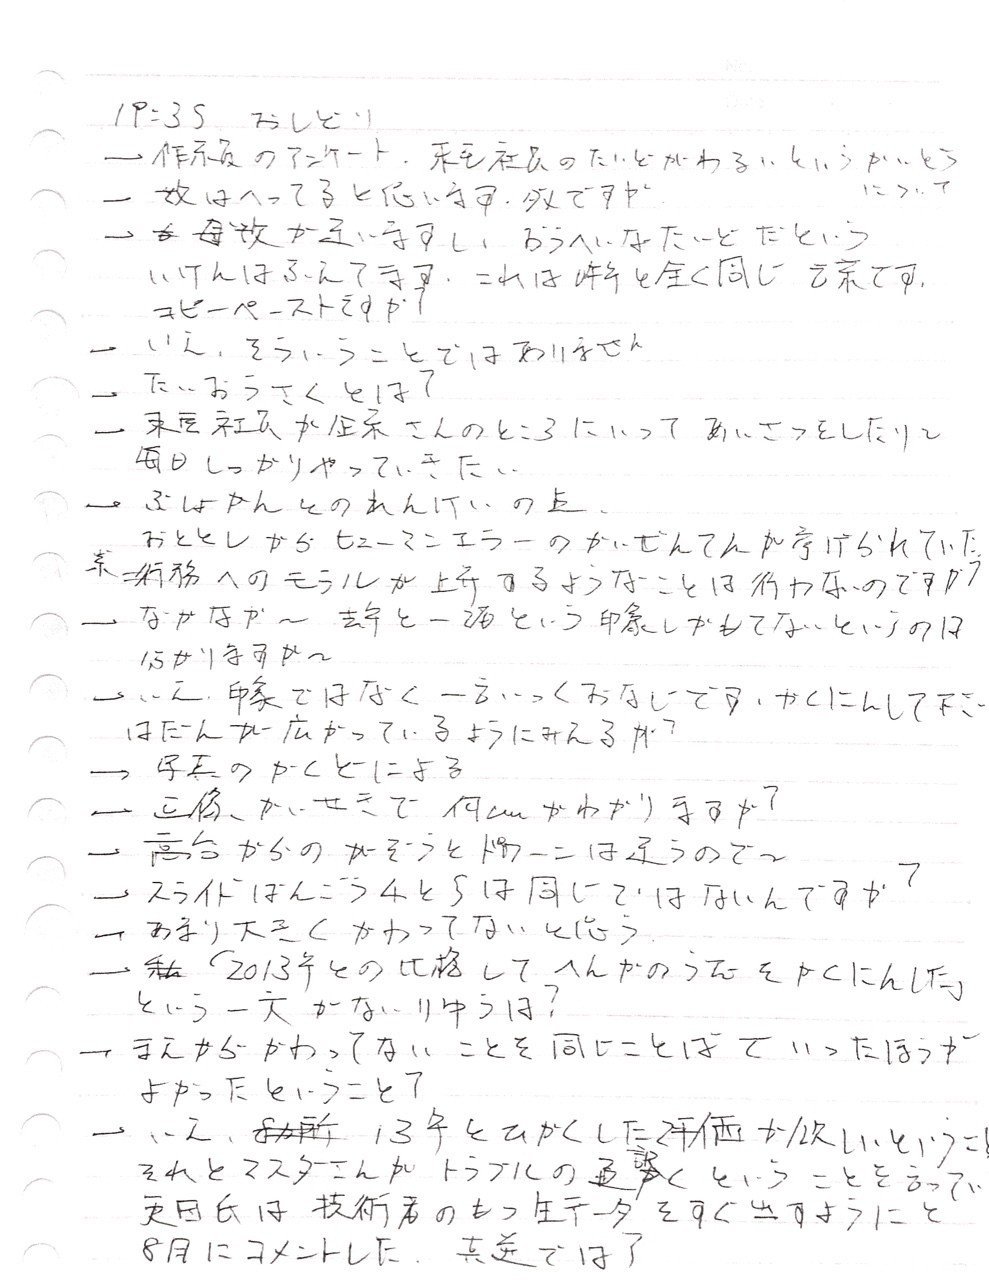 19:35 おしどり
→ 作業員のアンケート、東電社員のたいどがわるいというかいとう
について
→ 数はへってると思います。ダメですか
→ 母数が違いますし、おうへいなたいどだという
いけんはふえてます。これは昨年と全く同じ言葉です。
コピーペーストですか?
→ いえ、そういうことではありません
→ たいおうさくとは?
→ 東電社員が企業さんのところにいってあいさつをしたり〜
毎日しっかりやっていきたい
→ ぶしょかんとのれんけいの点、
おととしからヒューマンエラーのかいぜんてんが挙げられていた
業務へのモラルが上昇するようなことは行わないのですか?
→ なかなか〜 去年と一緒という印象しかもてないというのは
分かりますが〜
→ いえ、印象ではなく一言いっくおなじです。かくにんして下さい
はだんが広がっているようにみえるが?
→ 写真のかくどによる
→ 画像、かいせきで何cmかわかりますか?
→ 高台からのがぞうとドローンは違うので〜
→ スライドばんごう4と5は同じではないんですか?
→ あまり大きくかわってないと思う
→ 「2013年との比較してへんかのうむをかくにんした」
という一文がないりゆうは?
→ まえからかわってないことを同じことばでいったほうが
よかったということ?
→ いえ、13年とひかくした評価が欲しいということ
それとマスダさんがトラブルの通
ということを言ってい
更田氏は技術者のもつ生データをすぐ出すようにと
8月にコメントした。真逆では?